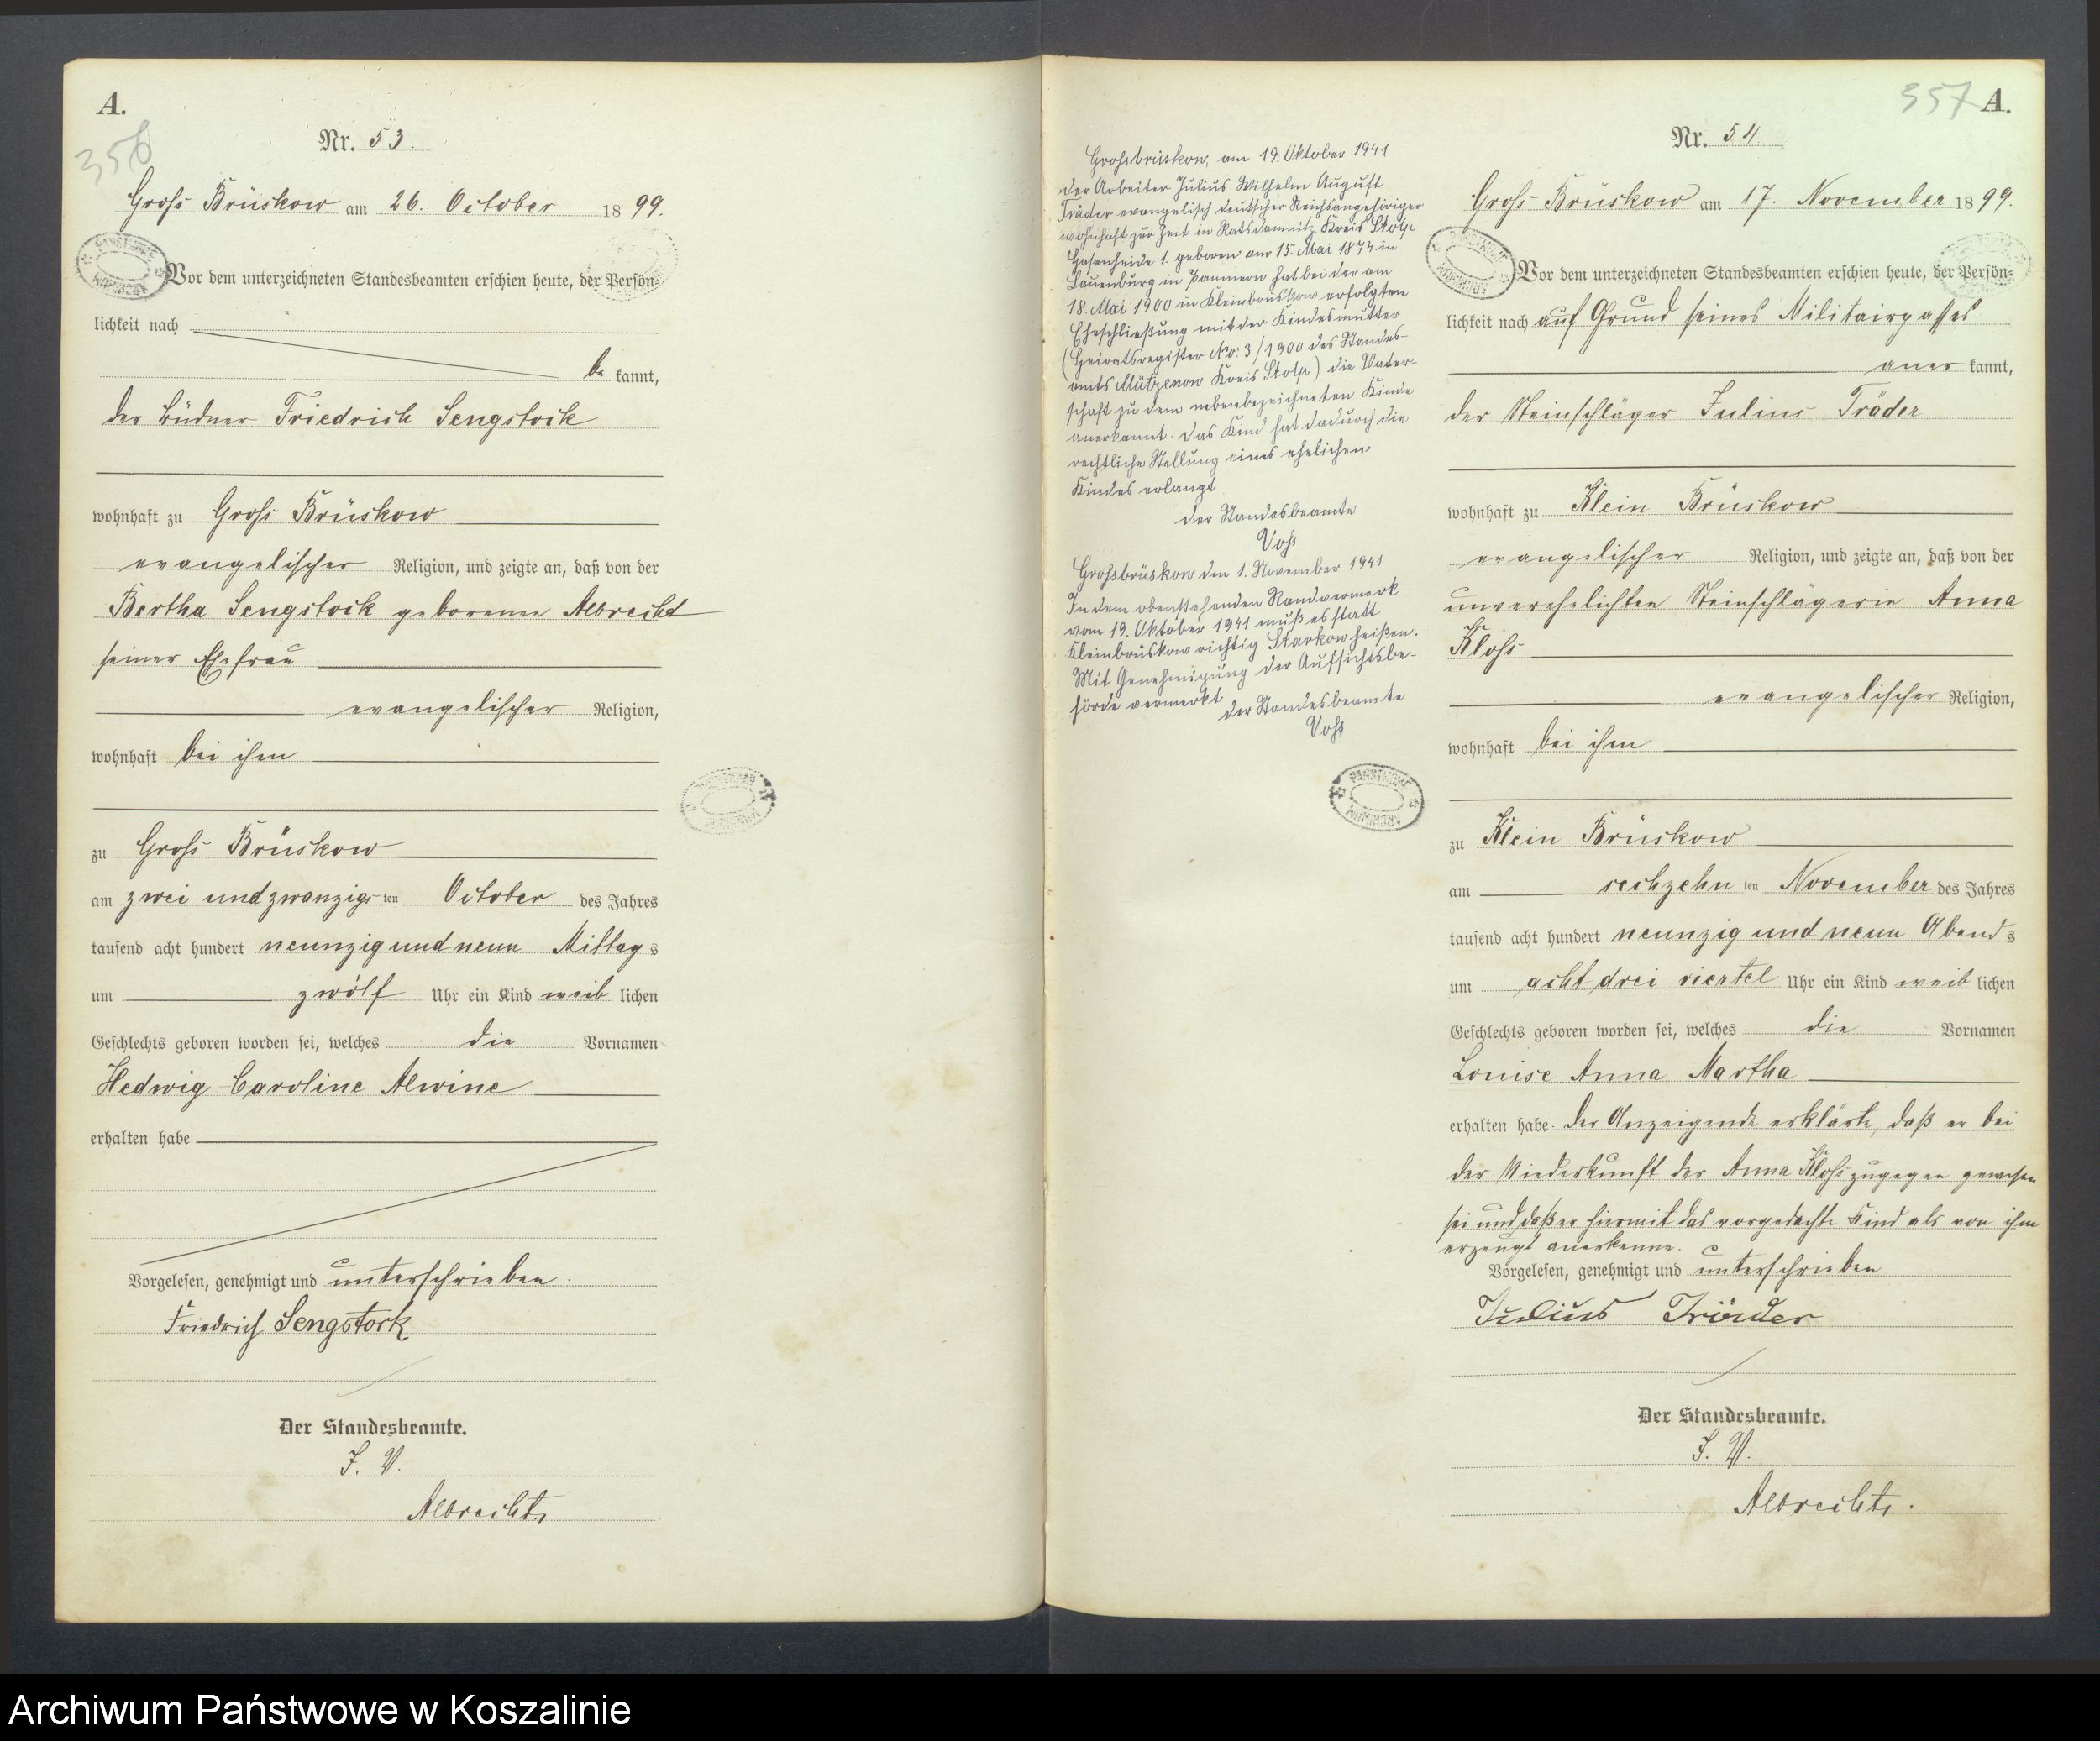 A.
356
Nr. 53.
Groß Brüskow am 26. October 1899.
Vor dem unterzeichneten Standesbeamten erschien heute, der Persön-
lichkeit nach
be kannt,
der Büdner Friedrich Sengstock
wohnhaft zu Groß Brüskow
evangelischer Religion, und zeigte an, daß von der
Bertha Sengstock geborenen Albrecht
seiner Ehefrau
evangelischer Religion,
wohnhaft bei ihm
zu Groß Brüskow
am zwei und zwanzigs ten October des Jahres
tausend acht hundert neunzig und neun Mittag s
um zwölf Uhr ein Kind weib lichen
Geschlechts geboren worden sei, welches die Vornamen
Hedwig Caroline Alwine
erhalten habe
Vorgelesen, genehmigt und unterschrieben.
Friedrich Sengstock
Der Standesbeamte.
J. V.
Albrecht.
PAŃSTWOWE
ARCHIWUM
Großbrüskow, am 19. Oktober 1941
Der Arbeiter Julius Wilhelm August
Träder evangelisch deutscher Reichsangehöriger
wohnhaft zur Zeit in Ratsdamnitz Kreis Stolp
Hasenheide 1. geboren am 15. Mai 1874 in
Lauenburg in Pommern hat bei der am
18. Mai 1900 in Kleinbrüskow erfolgten
Eheschließung mit der Kindesmutter
(Heiratsregister No: 3/1900 des Standes-
amts Mützenow Kreis Stolp) die Vater-
schaft zu dem nebenbezeichneten Kinde
anerkannt. Das Kind hat dadurch die
rechtliche Stellung eines ehelichen
Kindes erlangt
Der Standesbeamte
Voß
Großbrüskow den 1. November 1941
In dem obenstehenden Randvermerk
vom 19. Oktober 1941 muß es statt
Kleinbrüskow richtig Starkow heißen.
Mit Genehmigung der Aufsichtsbe-
hörde vermerkt
Der Standesbeamte
Voß
PAŃSTWOWE
ARCHIWUM
357 A.
Nr. 54
Groß Brüskow am 17. November 1899.
Vor dem unterzeichneten Standesbeamten erschien heute, der Persön-
lichkeit nach auf Grund seines Militairpasses
aner kannt,
der Steinschläger Julius Träder
wohnhaft zu Klein Brüskow
evangelischer Religion, und zeigte an, daß von der
unverehelichten Steinschlägerin Anna
Kloß
evangelischer Religion,
wohnhaft bei ihm
zu Klein Brüskow
am sechzehn ten November des Jahres
tausend acht hundert neunzig und neun Abend s
um acht drei viertel Uhr ein Kind weib lichen
Geschlechts geboren worden sei, welches die Vornamen
Louise Anna Martha
erhalten habe. Der Anzeigende erklärte, daß er bei
der Niederkunft der Anna Kloß zugegen gewesen
sei und daß er hiermit das vorgedachte Kind als von ihm
erzeugt anerkenne.
Vorgelesen, genehmigt und unterschrieben
Julius Träder
Der Standesbeamte.
J. V.
Albrecht.
Archiwum Państwowe w Koszalinie